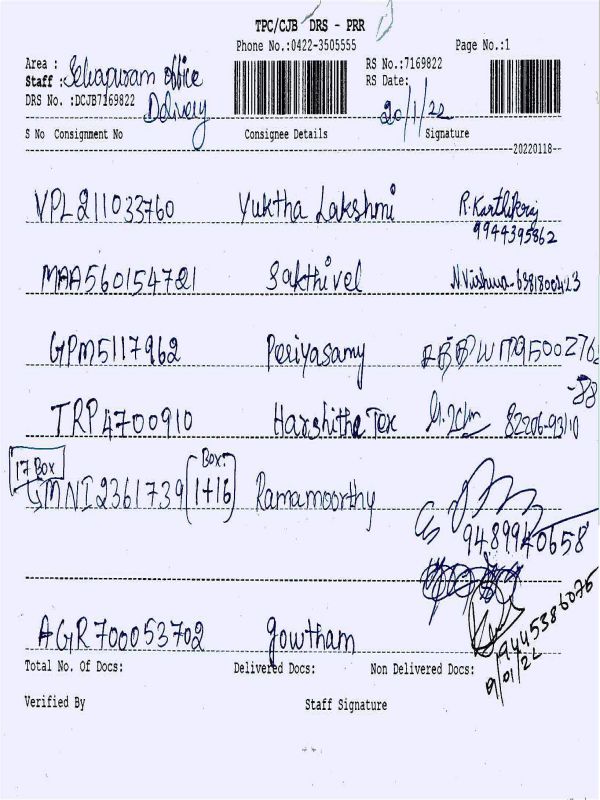 TPC/CJB DRS - PRR
Phone No.:0422-3505555 Page No.:1
Area : Selvapuram office RS No.:7169822
Staff : RS Date:
DRS No. :DCJB7169822 Delivery 20/1/22
S No Consignment No Consignee Details Signature
20220118
VPL211033760 Yuktha Lakshmi R.Karthikraj
9944395862
MAA560154721 Sakthivel N.Vishwa-6381800423
GPM5117962 Periyasamy 95002762
-88
TRP4700910 Harshitha Tex 82206-93110
17 Box
Box:
GMNI2361739 (1+16) Ramamoorthy
9489940658
AGR700053702 gowtham 9445386076
Total No. Of Docs: Delivered Docs: Non Delivered Docs:
Verified By Staff Signature